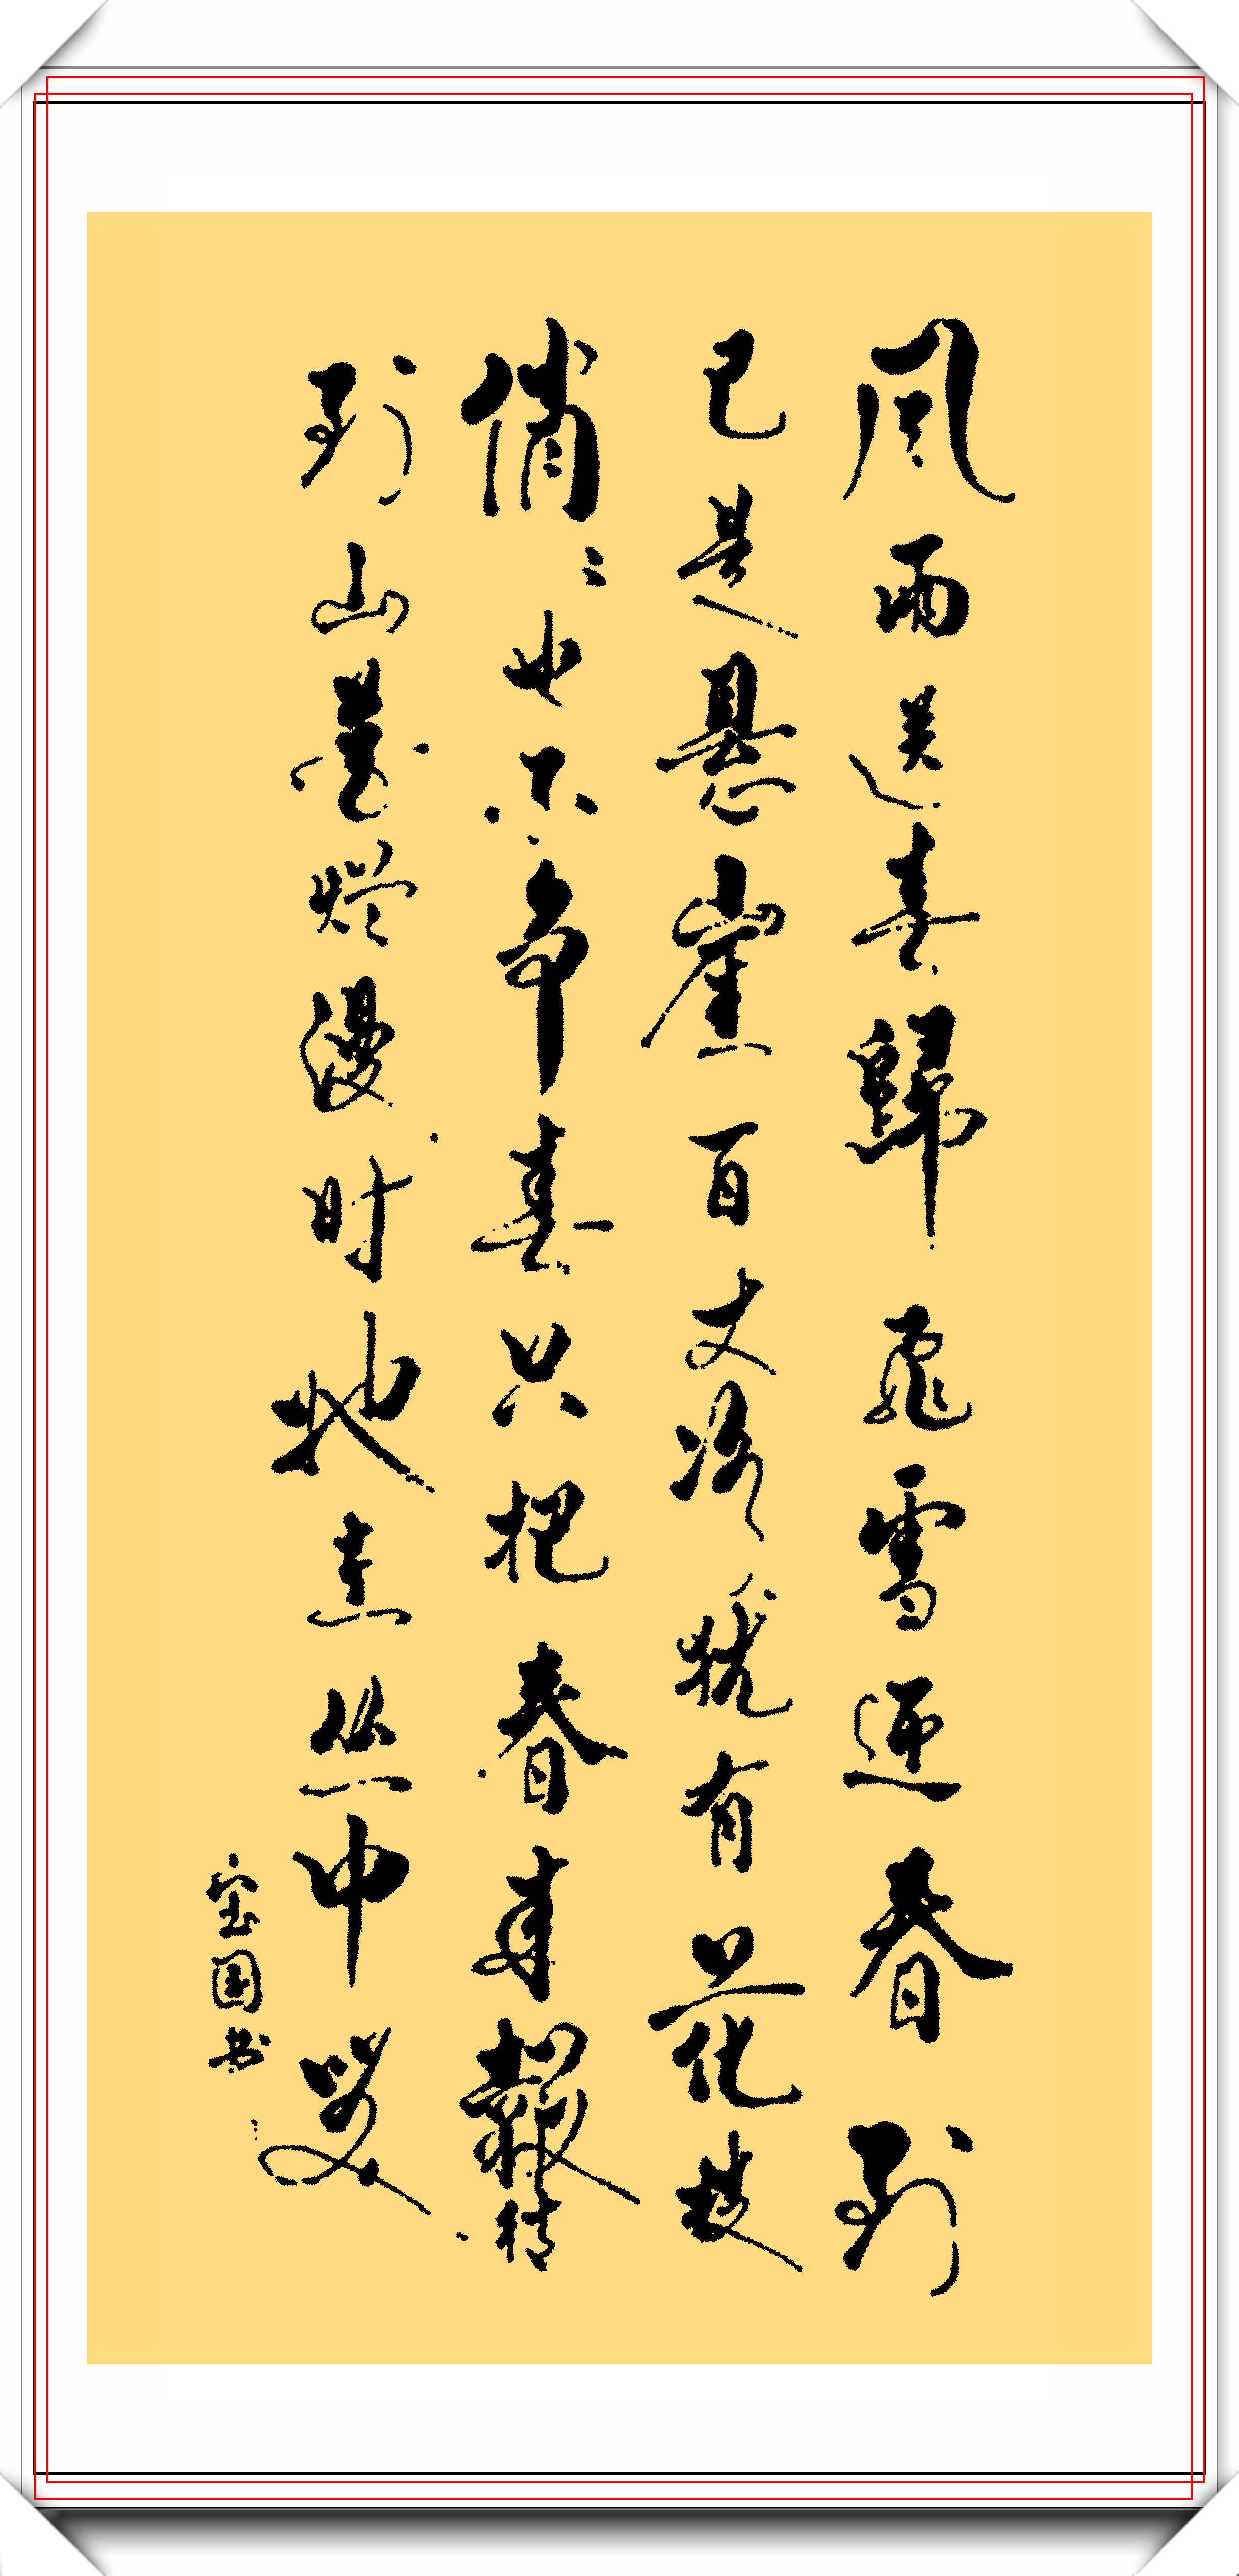 風雨送春歸飛雪迎春到
已是悬崖百丈冰犹有花枝
俏俏也不争春只把春来報待
到山花烂漫时她在丛中笑
宝国书